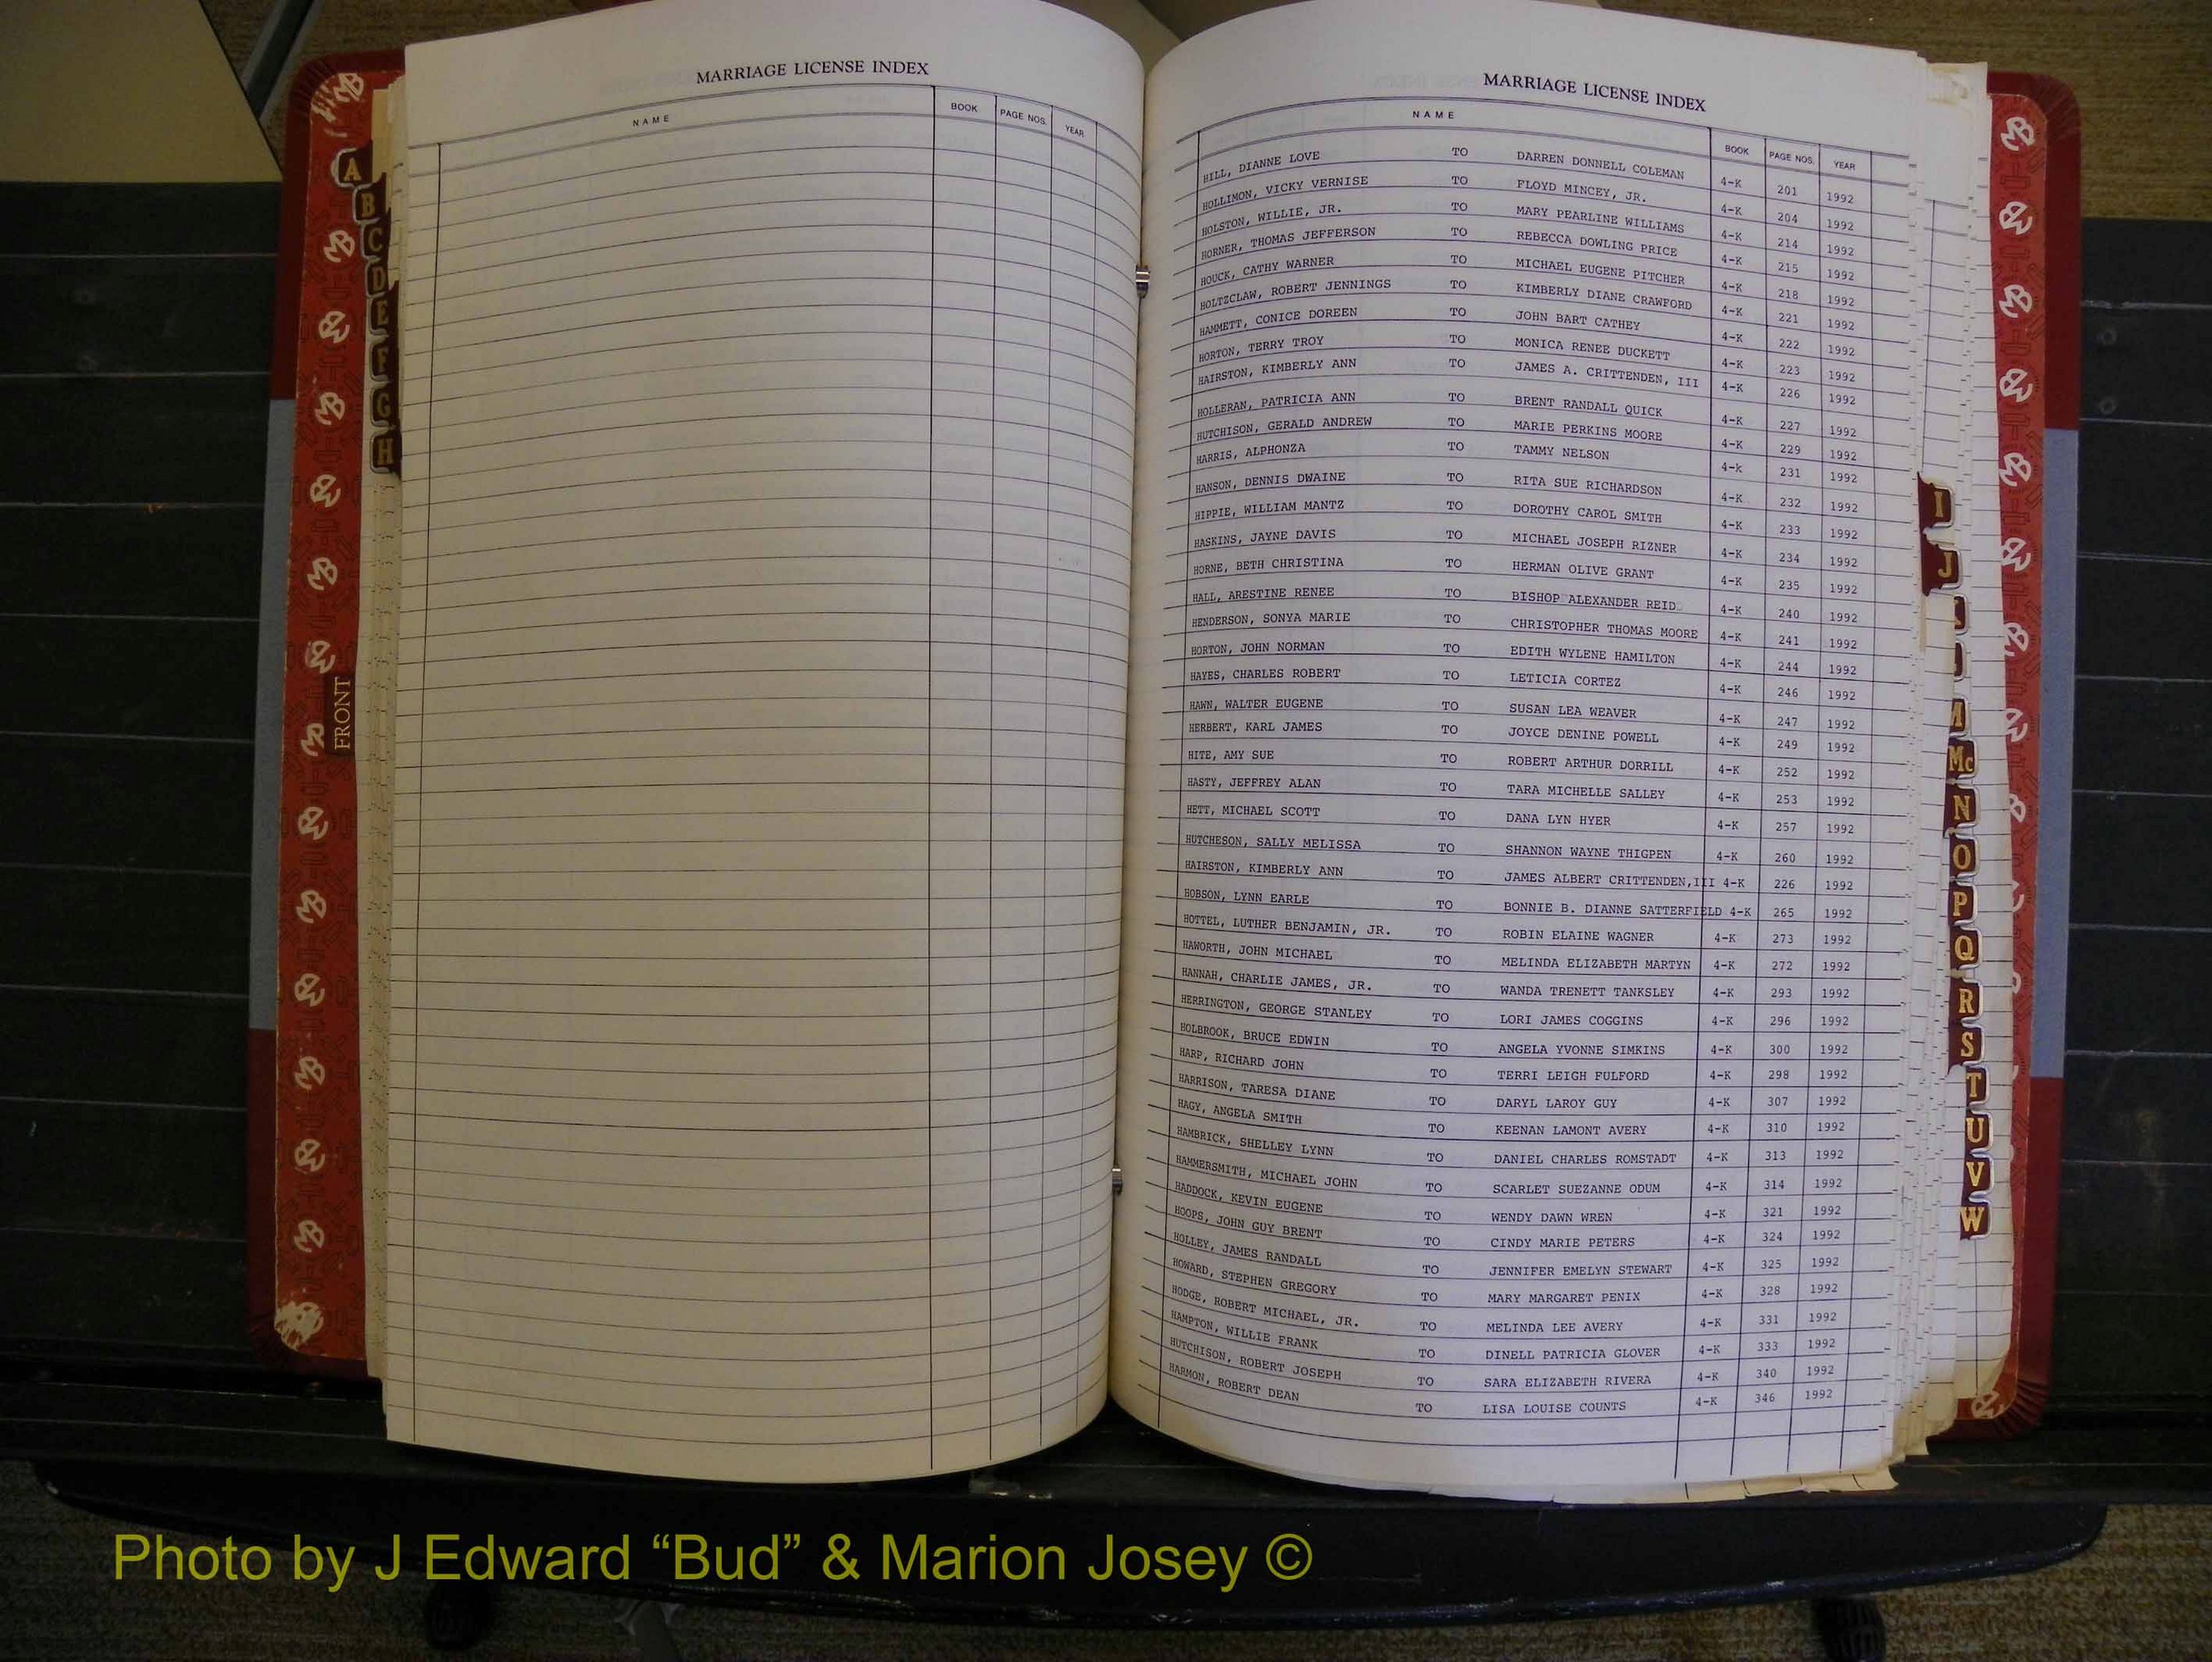 MARRIAGE LICENSE INDEX
NAME BOOK PAGE NOS. YEAR
A
B
C
D
E
F
G
H
FRONT
MARRIAGE LICENSE INDEX
NAME BOOK PAGE NOS. YEAR
HILL, DIANNE LOVE TO DARREN DONNELL COLEMAN 4-K 201 1992
HOLLIMON, VICKY VERNISE TO FLOYD MINCEY, JR. 4-K 204 1992
HOLSTON, WILLIE, JR. TO MARY PEARLINE WILLIAMS 4-K 214 1992
HORNER, THOMAS JEFFERSON TO REBECCA DOWLING PRICE 4-K 215 1992
HOUCK, CATHY WARNER TO MICHAEL EUGENE PITCHER 4-K 218 1992
HOLTZCLAW, ROBERT JENNINGS TO KIMBERLY DIANE CRAWFORD 4-K 221 1992
HAMMETT, CONICE DOREEN TO JOHN BART CATHEY 4-K 222 1992
HORTON, TERRY TROY TO MONICA RENEE DUCKETT 4-K 223 1992
HAIRSTON, KIMBERLY ANN TO JAMES A. CRITTENDEN, III 4-K 226 1992
HOLLERAN, PATRICIA ANN TO BRENT RANDALL QUICK 4-K 227 1992
HUTCHISON, GERALD ANDREW TO MARIE PERKINS MOORE 4-K 229 1992
HARRIS, ALPHONZA TO TAMMY NELSON 4-k 231 1992
HANSON, DENNIS DWAINE TO RITA SUE RICHARDSON 4-K 232 1992
HIPPIE, WILLIAM MANTZ TO DOROTHY CAROL SMITH 4-K 233 1992
HASKINS, JAYNE DAVIS TO MICHAEL JOSEPH RIZNER 4-K 234 1992
HORNE, BETH CHRISTINA TO HERMAN OLIVE GRANT 4-K 235 1992
HALL, ARESTINE RENEE TO BISHOP ALEXANDER REID 4-K 240 1992
HENDERSON, SONYA MARIE TO CHRISTOPHER THOMAS MOORE 4-K 241 1992
HORTON, JOHN NORMAN TO EDITH WYLENE HAMILTON 4-K 244 1992
HAYES, CHARLES ROBERT TO LETICIA CORTEZ 4-K 246 1992
HAWN, WALTER EUGENE TO SUSAN LEA WEAVER 4-K 247 1992
HERBERT, KARL JAMES TO JOYCE DENINE POWELL 4-K 249 1992
HITE, AMY SUE TO ROBERT ARTHUR DORRILL 4-K 252 1992
HASTY, JEFFREY ALAN TO TARA MICHELLE SALLEY 4-K 253 1992
HETT, MICHAEL SCOTT TO DANA LYN HYER 4-K 257 1992
HUTCHESON, SALLY MELISSA TO SHANNON WAYNE THIGPEN 4-K 260 1992
HAIRSTON, KIMBERLY ANN TO JAMES ALBERT CRITTENDEN,III 4-K 226 1992
HOBSON, LYNN EARLE TO BONNIE B. DIANNE SATTERFIELD 4-K 265 1992
HOTTEL, LUTHER BENJAMIN, JR. TO ROBIN ELAINE WAGNER 4-K 273 1992
HAWORTH, JOHN MICHAEL TO MELINDA ELIZABETH MARTYN 4-K 272 1992
HANNAH, CHARLIE JAMES, JR. TO WANDA TRENETT TANKSLEY 4-K 293 1992
HERRINGTON, GEORGE STANLEY TO LORI JAMES COGGINS 4-K 296 1992
HOLBROOK, BRUCE EDWIN TO ANGELA YVONNE SIMKINS 4-K 300 1992
HARP, RICHARD JOHN TO TERRI LEIGH FULFORD 4-K 298 1992
HARRISON, TARESA DIANE TO DARYL LAROY GUY 4-K 307 1992
HAGY, ANGELA SMITH TO KEENAN LAMONT AVERY 4-K 310 1992
HAMBRICK, SHELLEY LYNN TO DANIEL CHARLES ROMSTADT 4-K 313 1992
HAMMERSMITH, MICHAEL JOHN TO SCARLET SUEZANNE ODUM 4-K 314 1992
HADDOCK, KEVIN EUGENE TO WENDY DAWN WREN 4-K 321 1992
HOOPS, JOHN GUY BRENT TO CINDY MARIE PETERS 4-K 324 1992
HOLLEY, JAMES RANDALL TO JENNIFER EMELYN STEWART 4-K 325 1992
HOWARD, STEPHEN GREGORY TO MARY MARGARET PENIX 4-K 328 1992
HODGE, ROBERT MICHAEL, JR. TO MELINDA LEE AVERY 4-K 331 1992
HAMPTON, WILLIE FRANK TO DINELL PATRICIA GLOVER 4-K 333 1992
HUTCHISON, ROBERT JOSEPH TO SARA ELIZABETH RIVERA 4-K 340 1992
HARMON, ROBERT DEAN TO LISA LOUISE COUNTS 4-K 346 1992
I
J
Mc
N
O
P
Q
R
S
T
U
V
W
Photo by J Edward “Bud” & Marion Josey ©